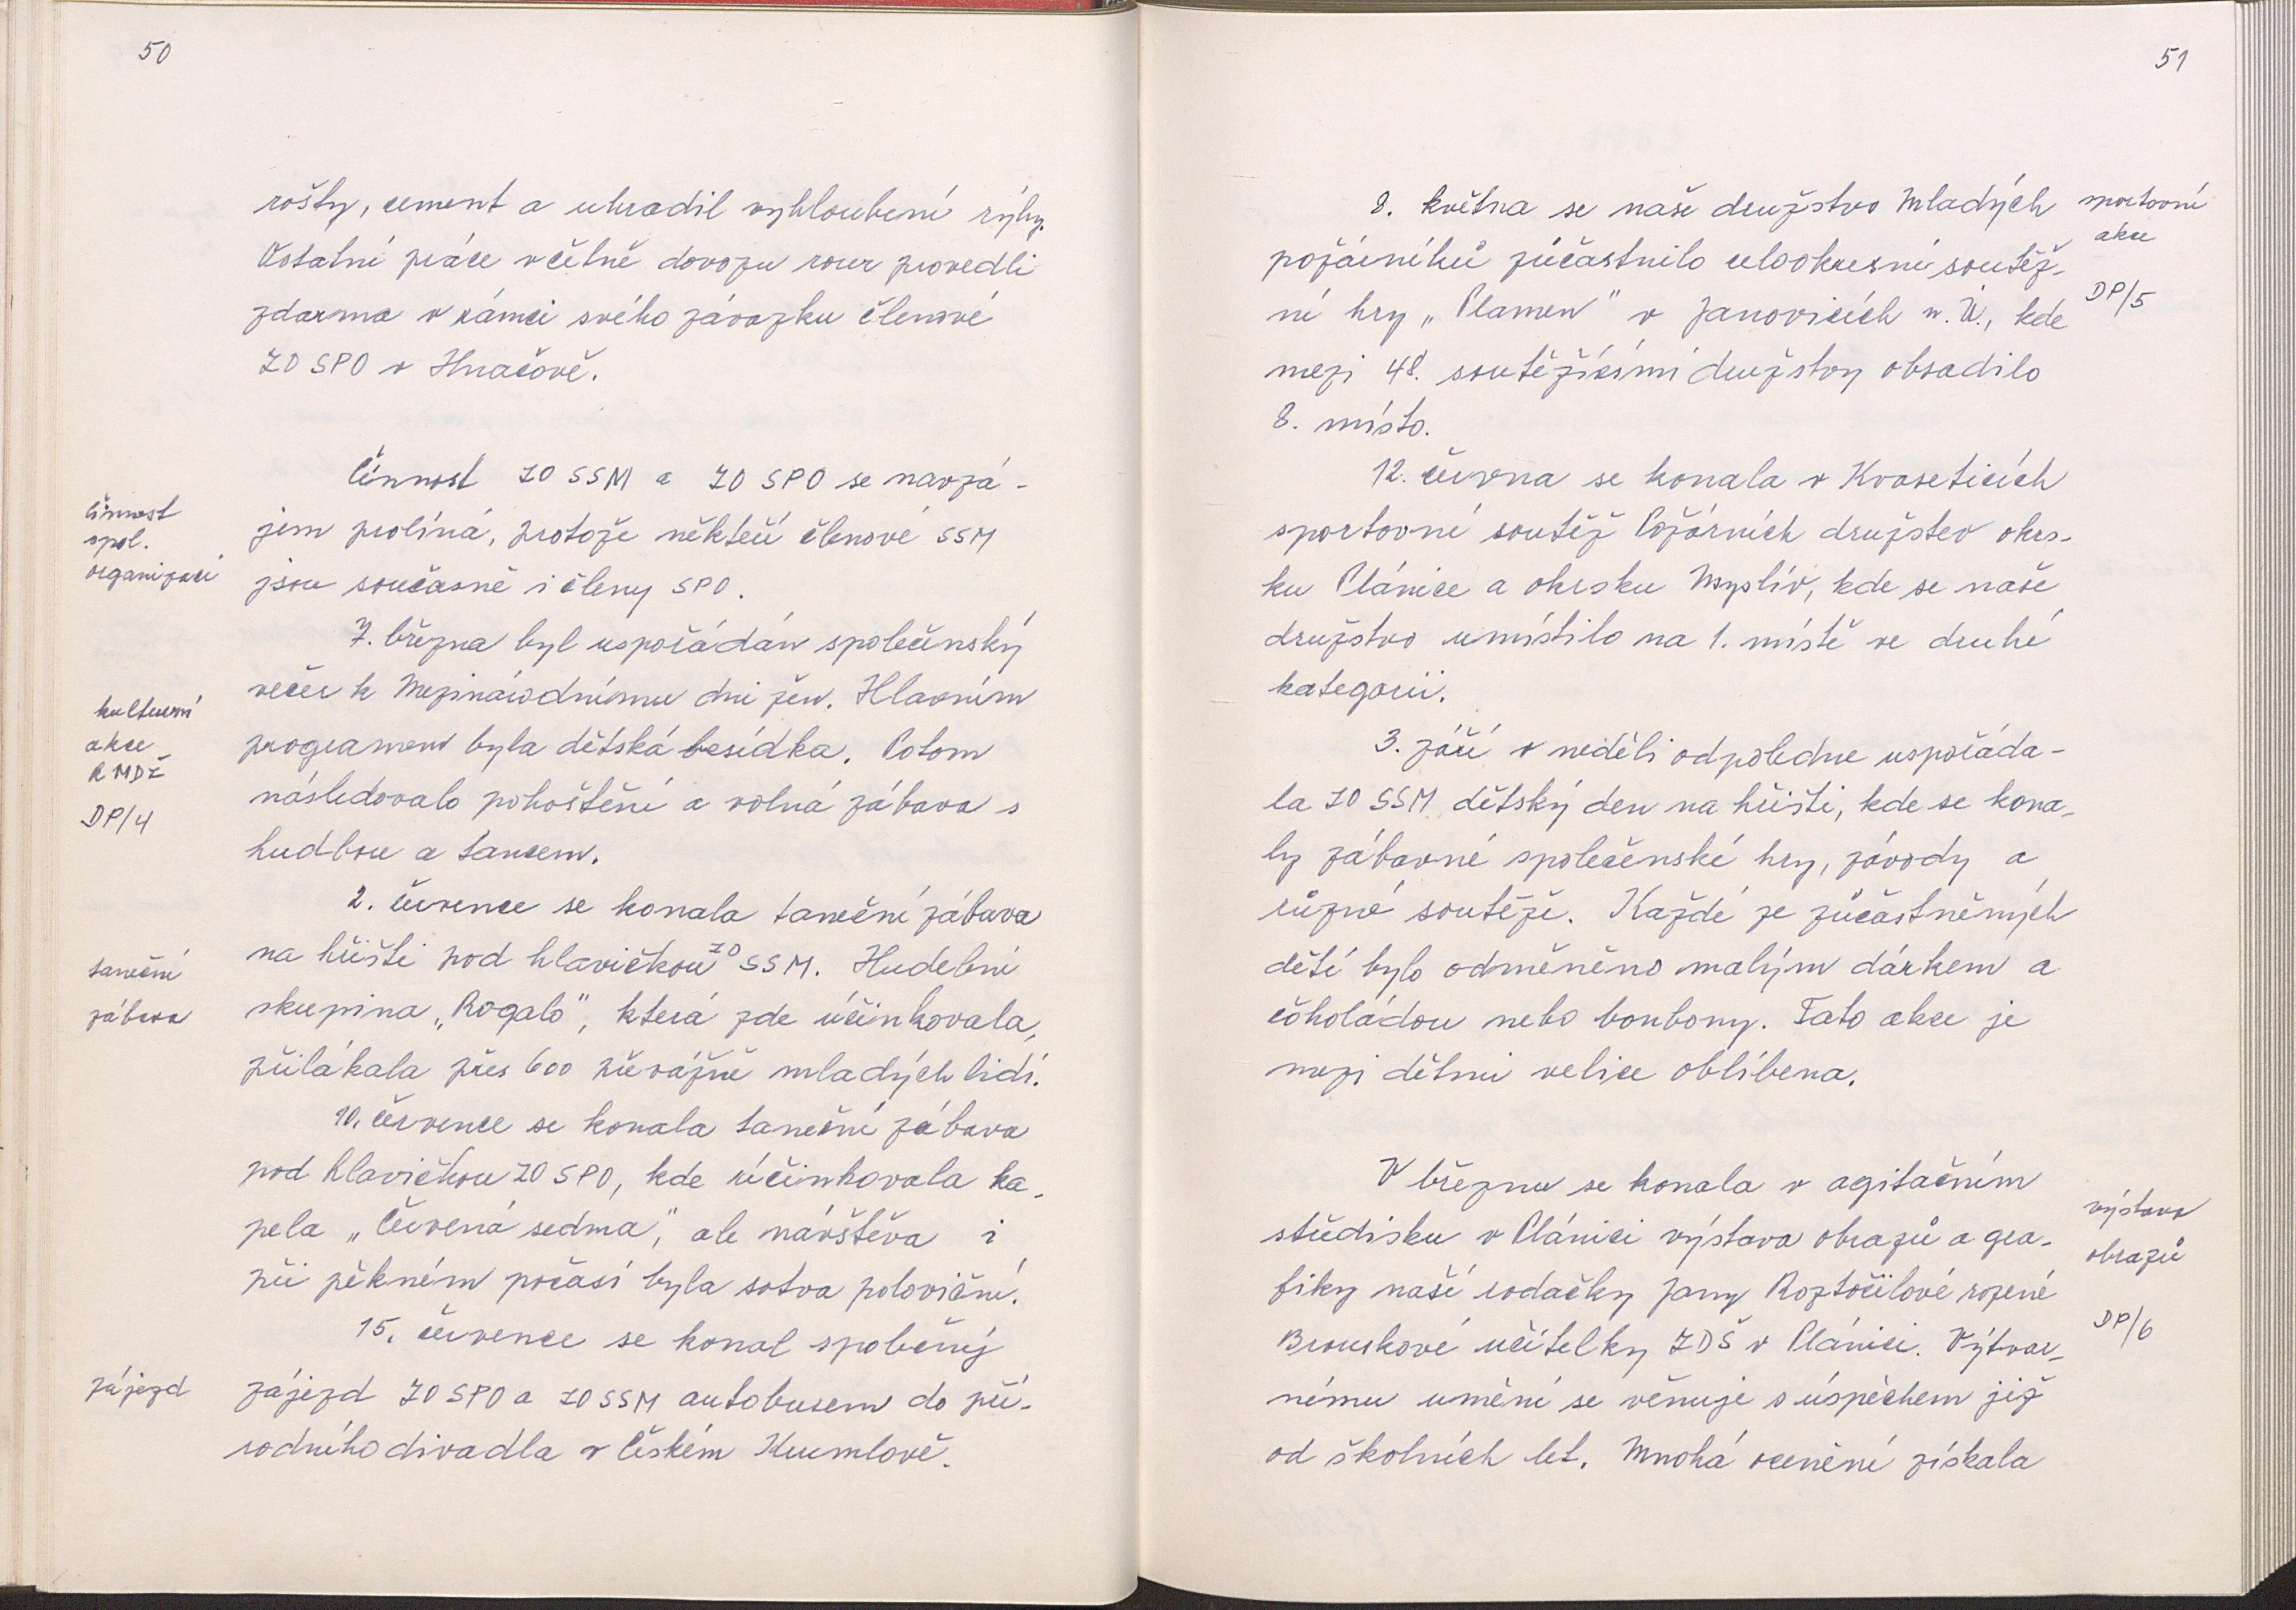 50
rošty, cement a uhradil vyhloubení rýhy.
Ostatní práce včetně dovozu rour provedli
zdarma v rámci svého závazku členové
ZO SPO v Hnačově.
Činnost ZO SSM a ZO SPO se navzá-
činnost
spol.
organizací
jem prolíná, protože někteří členové SSM
jsou současně i členy SPO.
7. března byl uspořádán společenský
večer k Mezinárodnímu dni žen. Hlavním
kulturní
akce
k MDŽ
DP/4
programem byla dětská besídka. Potom
následovalo pohoštění a volná zábava s
hudbou a tancem.
2. července se konala taneční zábava
na hřišti pod hlavičkou ZO SSM. Hudební
taneční
zábava
skupina „Rogalo", která zde účinkovala,
přilákala přes 600 převážně mladých lidí.
10. července se konala taneční zábava
pod hlavičkou ZO SPO, kde účinkovala ka-
pela „Červená sedma", ale návštěva i
při pěkném počasí byla sotva poloviční.
15. července se konal společný
zájezd
zájezd ZO SPO a ZO SSM autobusem do pří-
rodního divadla v Českém Krumlově.
51
8. května se naše družstvo Mladých
sportovní
akce
DP/5
požárníků zúčastnilo celookresní soutěž-
ní hry „Plamen" v Janovicích n. Ú., kde
mezi 48. soutěžícími družstvy obsadilo
8. místo.
12. června se konala v Kvaseticích
sportovní soutěž Požárních družstev okrs-
ku Plánice a okrsku Myslív, kde se naše
družstvo umístilo na 1. místě ve druhé
kategorii.
3. září v neděli odpoledne uspořáda-
la ZO SSM dětský den na hřišti, kde se kona-
ly zábavné společenské hry, závody a
různé soutěže. Každé ze zúčastněných
dětí bylo odměněno malým dárkem a
čokoládou nebo bonbony. Tato akce je
mezi dětmi velice oblíbena.
V březnu se konala v agitačním
výstava
obrazů
DP/6
středisku v Plánici výstava obrazů a gra-
fiky naší rodačky Jany Roztočilové rozené
Brouskové učitelky ZDŠ v Plánici. Výtvar-
nému umění se věnuje s úspěchem již
od školních let. Mnohá ocenění získala